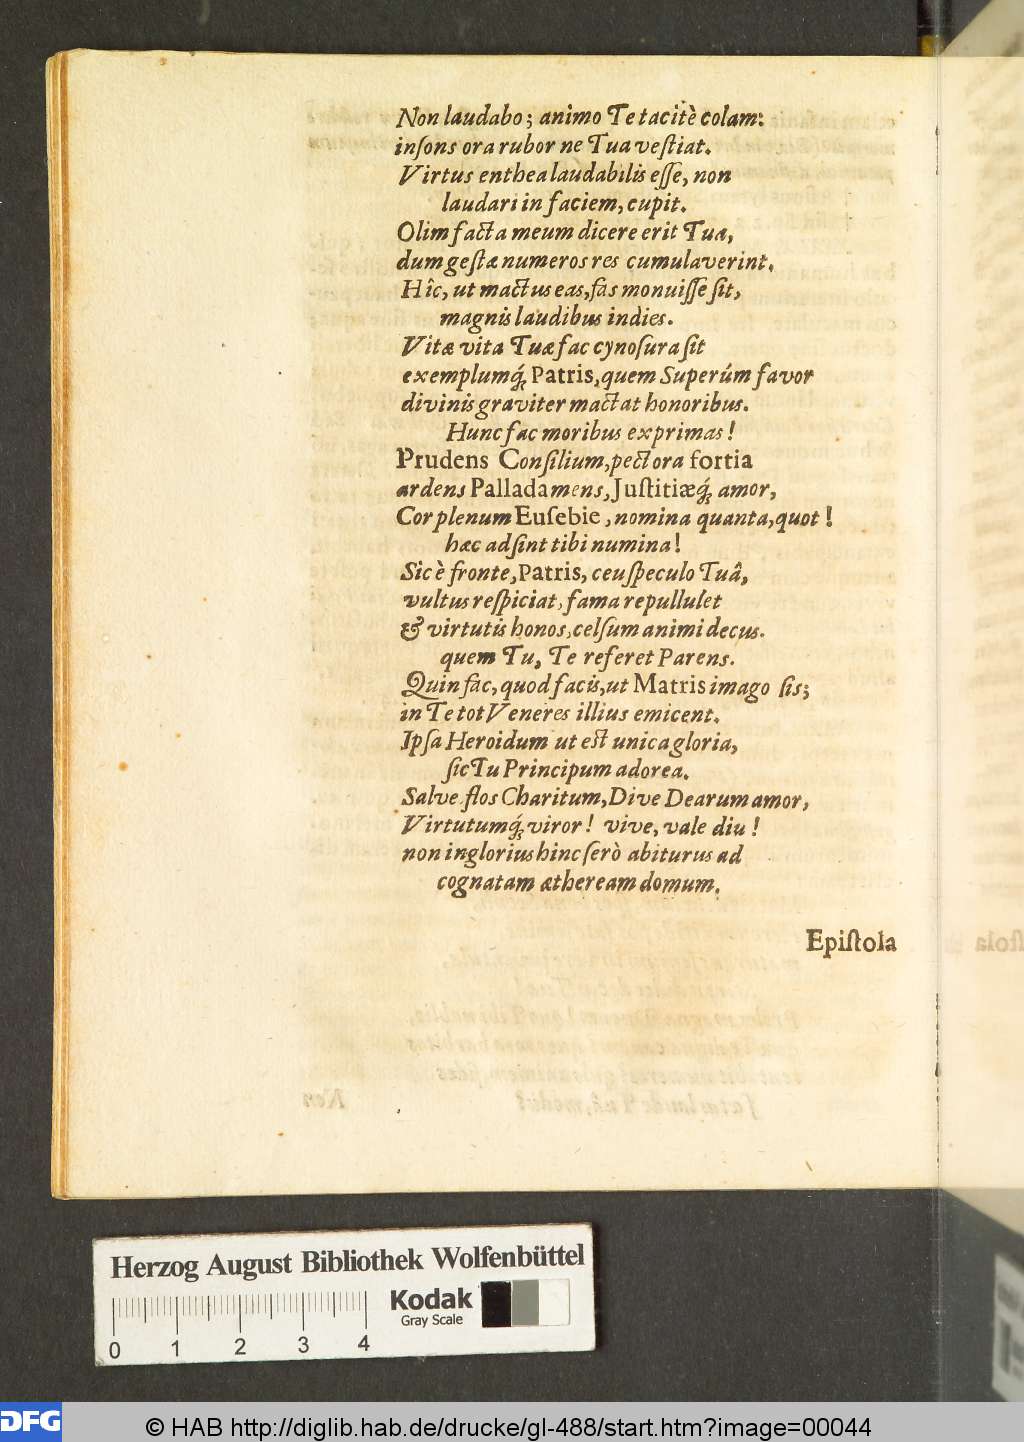 Non laudabo; animo Te tacitè colam:
inſons ora rubor ne Tua veſtiat.
Virtus enthea laudabilis eſſe, non
laudari in faciem, cupit.
Olim facta meum dicere erit Tua,
dum geſtæ numeros res cumulaverint.
Hîc, ut mactus eas, fas monuiſſe ſit,
magnis laudibus indies.
Vitæ vita Tuæ fac cynoſura ſit
exemplumq́; Patris, quem Superúm favor
divinis graviter mactat honoribus.
Hunc fac moribus exprimas!
Prudens Conſilium, pectora fortia
ardens Pallada mens, Juſtitiæq́; amor,
Cor plenum Euſebie, nomina quanta, quot!
hæc adſint tibi numina!
Sic è fronte, Patris, ceu ſpeculo Tuâ,
vultus reſpiciat, fama repullulet
& virtutis honos, celſum animi decus.
quem Tu, Te referet Parens.
Quin fac, quod facis, ut Matris imago ſis;
in Te tot Veneres illius emicent.
Ipſa Heroidum ut eſt unica gloria,
ſic Tu Principum adorea.
Salve flos Charitum, Dive Dearum amor,
Virtutumq́; viror! vive, vale diu!
non inglorius hinc ſerò abiturus ad
cognatam ætheream domum.
Epiſtola
Herzog August Bibliothek Wolfenbüttel
Kodak
Gray Scale
0 1 2 3 4
DFG
© HAB http://diglib.hab.de/drucke/gl-488/start.htm?image=00044